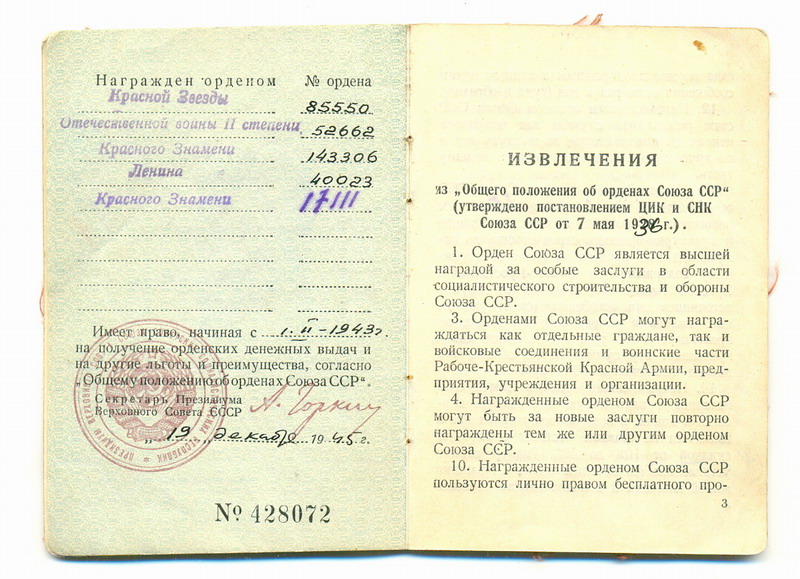 Награжден орденом № ордена
Красной Звезды 85550
Отечественной войны II степени 52662
Красного Знамени 143306
Ленина 40023
Красного Знамени 17111
Имеет право, начиная с 1.II-1943г.
на получение орденских денежных выдач и
на другие льготы и преимущества, согласно
„Общему положению об орденах Союза ССР“.
Секретарь Президиума
Верховного Совета СССР А. Горкин
„19„ декабря 1945 г.
№ 428072
ИЗВЛЕЧЕНИЯ
из „Общего положения об орденах Союза ССР“
(утверждено постановлением ЦИК и СНК
Союза ССР от 7 мая 1936 г.).
1. Орден Союза ССР является высшей
наградой за особые заслуги в области
социалистического строительства и обороны
Союза ССР.
3. Орденами Союза ССР могут награ-
ждаться как отдельные граждане, так и
войсковые соединения и воинские части
Рабоче-Крестьянской Красной Армии, пред-
приятия, учреждения и организации.
4. Награжденные орденом Союза ССР
могут быть за новые заслуги повторно
награждены тем же или другим орденом
Союза ССР.
10. Награжденные орденом Союза ССР
пользуются лично правом бесплатного про-
3